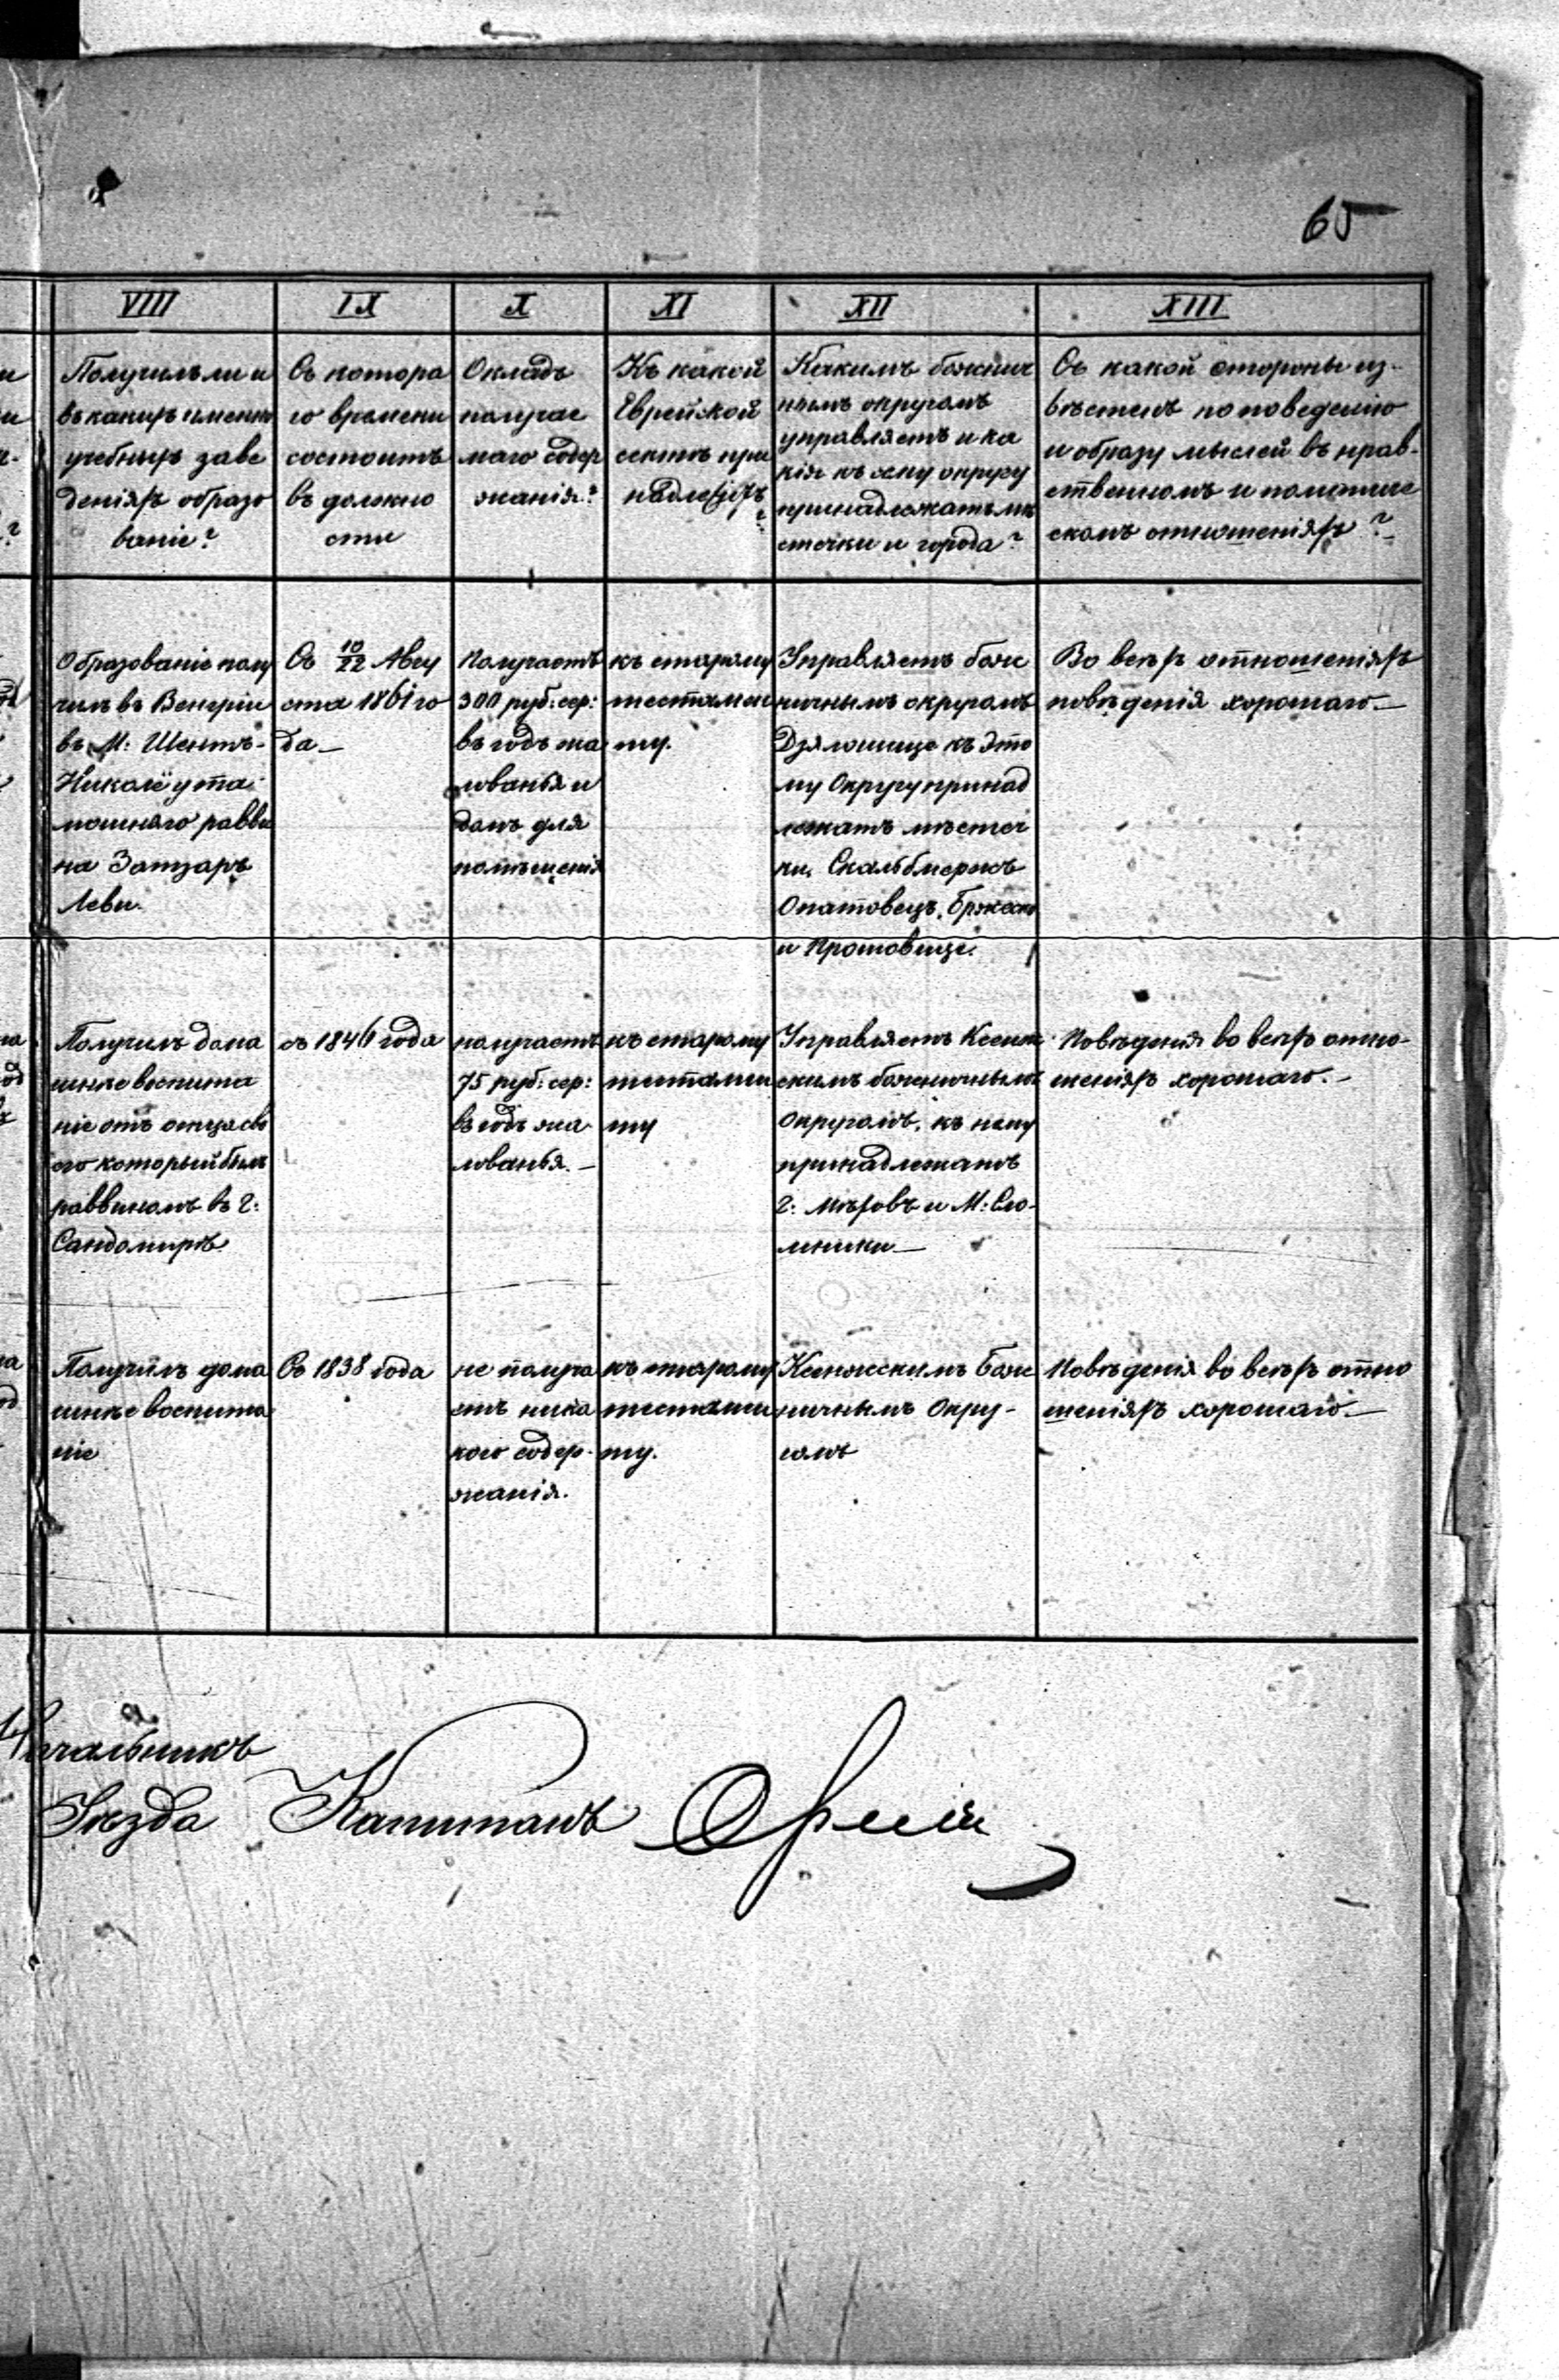 65
VIII
IX
X
XI
XII
XIII
Получилъ ли и
въ какихъ именно
учебныхъ заве
деніяхъ образо
ваніе?
Съ котора
го времени
состоитъ
въ должно
сти
Окладъ
получае
маго содер
жанія?
Къ какой
Еврейской
сектѣ при
надлежитъ
?
Какимъ божнич
нымъ округомъ
управляетъ и ка
кія къ сему округу
принадлежатъ мѣ
стечки и города?
Съ какой стороны из-
вѣстенъ по поведенію
и образу мыслей въ нрав-
ственномъ и политиче
скомъ отношеніяхъ?
Образованіе полу
чилъ въ Венгріи
въ М: Шентъ-
Николё у та
мошняго равви
на
Леви.
Съ 10/22 Авгу
ста 1861 го
да
Получаетъ
300 руб: сер:
въ годъ жа
лованья и
домъ для
помѣщенія
къ старому
тестамен
ту.
Управляетъ бож
ничнымъ округомъ
Дзялошице къ это
му Округу принад
лежатъ мѣстеч
ки, Скальбмержъ
Опатовецъ, Бржеско
и Прошовице.
Во всѣхъ отношеніяхъ
повѣденія хорошаго
Получилъ дома
шнѣе воспита
ніе отъ отца сво
его который былъ
раввиномъ въ г:
Сандомирѣ
съ 1846 года
получаетъ
75 руб: сер:
въ годъ жа
лованья.
къ старому
тестамен
ту
Управляетъ Ксенж
скимъ боженичнымъ
Округомъ, къ нему
принадлежатъ
г: Мѣховъ и М: Сло-
мники
Повѣденія во всѣхъ отно-
шеніяхъ хорошаго.
Получилъ дома
шнѣе воспита
ніе
Съ 1838 года
не получа
етъ ника
кого содер-
жанія.
къ старому
тестамен
ту.
Ксенжскимъ Бож
ничнымъ Окру-
гомъ
Повѣденія во всѣхъ отно
шеніяхъ хорошаго
Начальникъ
Уѣзда Капитанъ